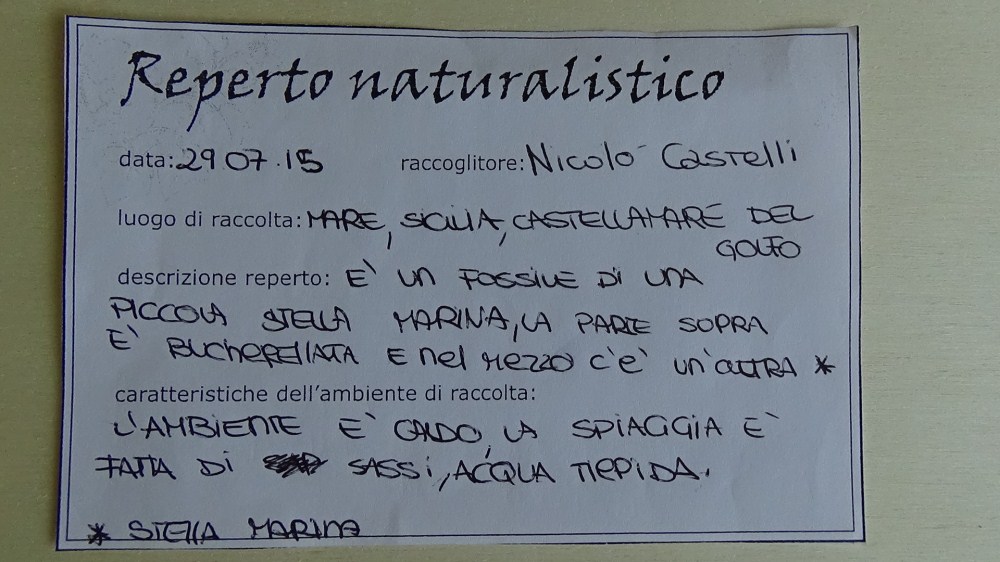 Reperto naturalistico
data: 29 07.15 raccoglitore: Nicolò Castelli
luogo di raccolta: MARE, SICILIA, CASTELLAMARE DEL
GOLFO
descrizione reperto: È UN FOSSILE DI UNA
PICCOLA STELLA MARINA, LA PARTE SOPRA
E' BUCHERELLATA E nel MEZZO C'E' UN'ALTRA *
caratteristiche dell'ambiente di raccolta:
L'AMBIENTE E' CALDO, LA SPIAGGIA E'
FATTA DI SASSI, ACQUA TIEPIDA.
* STELLA MARINA